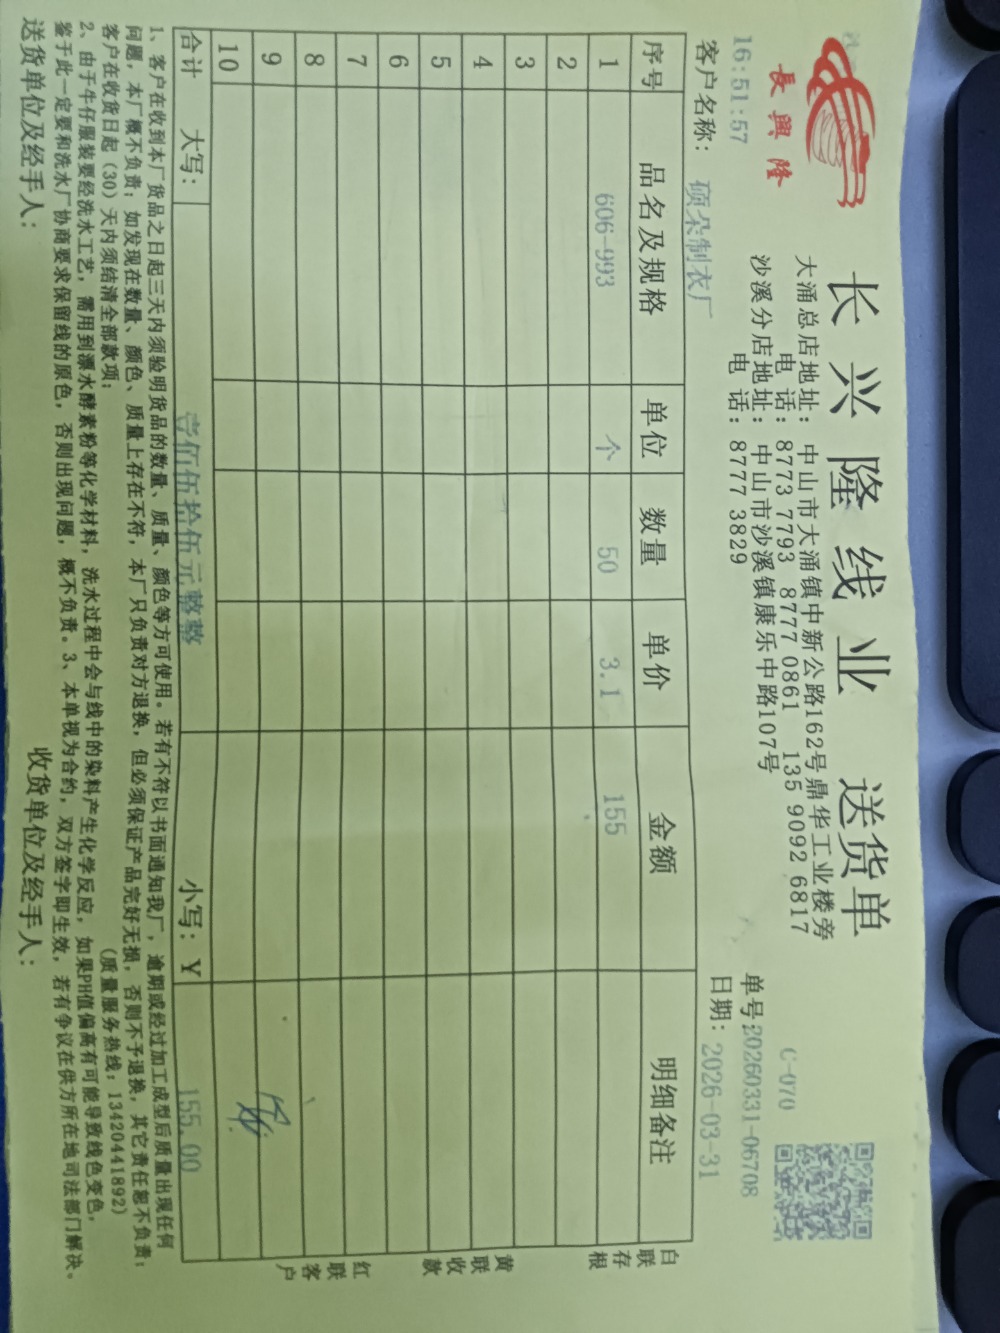 長興隆
长兴隆线业 送货单
大涌总店地址：中山市大涌镇中新公路162号鼎华工业楼旁
电话：8773 7793 8777 0861 135 9092 6817
沙溪分店地址：中山市沙溪镇康乐中路107号
电话：8777 3829
C-070
16:51:57
单号:20260331-06708
客户名称：硕朵制衣厂
日期：2026-03-31
序号 品名及规格 单位 数量 单价 金额 明细备注
1 606-993 个 50 3.1 155
2
3
4
5
6
7
8
9
10
合计 大写：壹佰伍拾伍元整整 小写：¥ 155.00
白联存根
黄联收款
红联客户
1、客户在收到本厂货品之日起三天内须验明货品的数量、质量、颜色等方可使用。若有不符以书面通知我厂，逾期或经过加工成型后质量出现任何
问题，本厂概不负责；如发现在数量、颜色、质量上存在不符，本厂只负责对方退换，但必须保证产品完好无损，否则不予退换，其它责任恕不负责；
客户在收货日起（30）天内须结清全部款项； （质量服务热线：13420441892）
2、由于牛仔服装要经洗水工艺，需用到漂水酵素粉等化学材料，洗水过程中会与线中的染料产生化学反应，如果PH值偏高有可能导致线色变色，
鉴于此一定要和洗水厂协商要求保留线的原色，否则出现问题，概不负责。3、本单视为合约，双方签字即生效，若有争议在供方所在地司法部门解决。
送货单位及经手人： 收货单位及经手人：